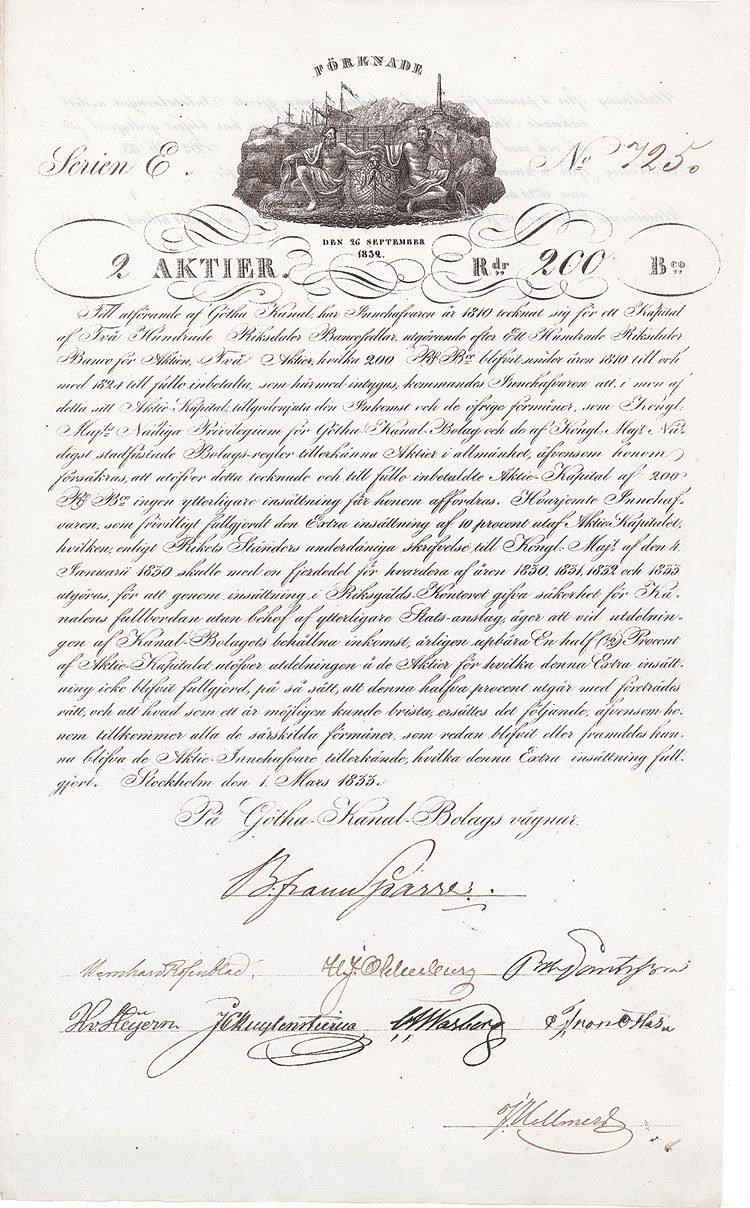 FÖRENADE
Serien E.
No 725.
DEN 26 SEPTEMBER
1832.
2 AKTIER.
Rdr 200 Bco
Till utförande af Götha Kanal, har Innehafvaren år 1810 tecknat sig för ett Kapital
af Två Hundrade Riksdaler Bancosedlar, utgörande efter Ett Hundrade Riksdaler
Banco för Aktien, Två Aktier, hvilka 200 Rdr Bco blifvit under åren 1810 till och
med 1824 till fullo inbetalta, som härmed intygas, kommandes Innehafvaren att, i mon af
detta sitt Aktie-Kapital, tillgodonjuta den Inkomst och de öfrige förmåner, som Kongl.
Maj:ts Nådiga Privilegium för Götha Kanal-Bolag och de af Kongl. Maj:t Nå-
digst stadfästade Bolags-regler tillerkänna Aktier i allmänhet, äfvensom honom
försäkras, att utöfver detta tecknade och till fullo inbetaldte Aktie-Kapital af 200
Rdr Bco ingen ytterligare insättning får honom affordras. Hvarjemte Innehaf-
varen, som frivilligt fullgjordt den Extra insättning af 10 procent utaf Aktie-Kapitalet,
hvilken, enligt Rikets Ständers underdåniga skrifvelse till Kongl. Maj:t af den 4.
Januarii 1830 skulle med en fjerdedel för hvardera af åren 1830, 1831, 1832 och 1833
utgöras, för att genom insättning i Riksgälds-Kontoret gifva säkerhet för Ka-
nalens fullbordan utan behof af ytterligare Stats-anslag, äger att vid utdelnin-
gen af Kanal-Bolagets behållna inkomst, årligen uppbära En half (½) Procent
af Aktie-Kapitalet utöfver utdelningen å de Aktier för hvilka denna Extra insätt-
ning icke blifvit fullgjord, på så sätt, att denna halfva procent utgår med företrädes
rätt, och att hvad som ett år möjligen kunde brista, ersättes det följande, äfvensom ho-
nom tillkommer alla de särskilda förmåner, som redan blifvit eller framdeles kun-
na blifva de Aktie-Innehafvare tillerkände, hvilka denna Extra insättning full-
gjort. Stockholm den 1. Mars 1833.
På Götha-Kanal-Bolags vägnar.
B. Sparre.
Mernhard Rosenblad.